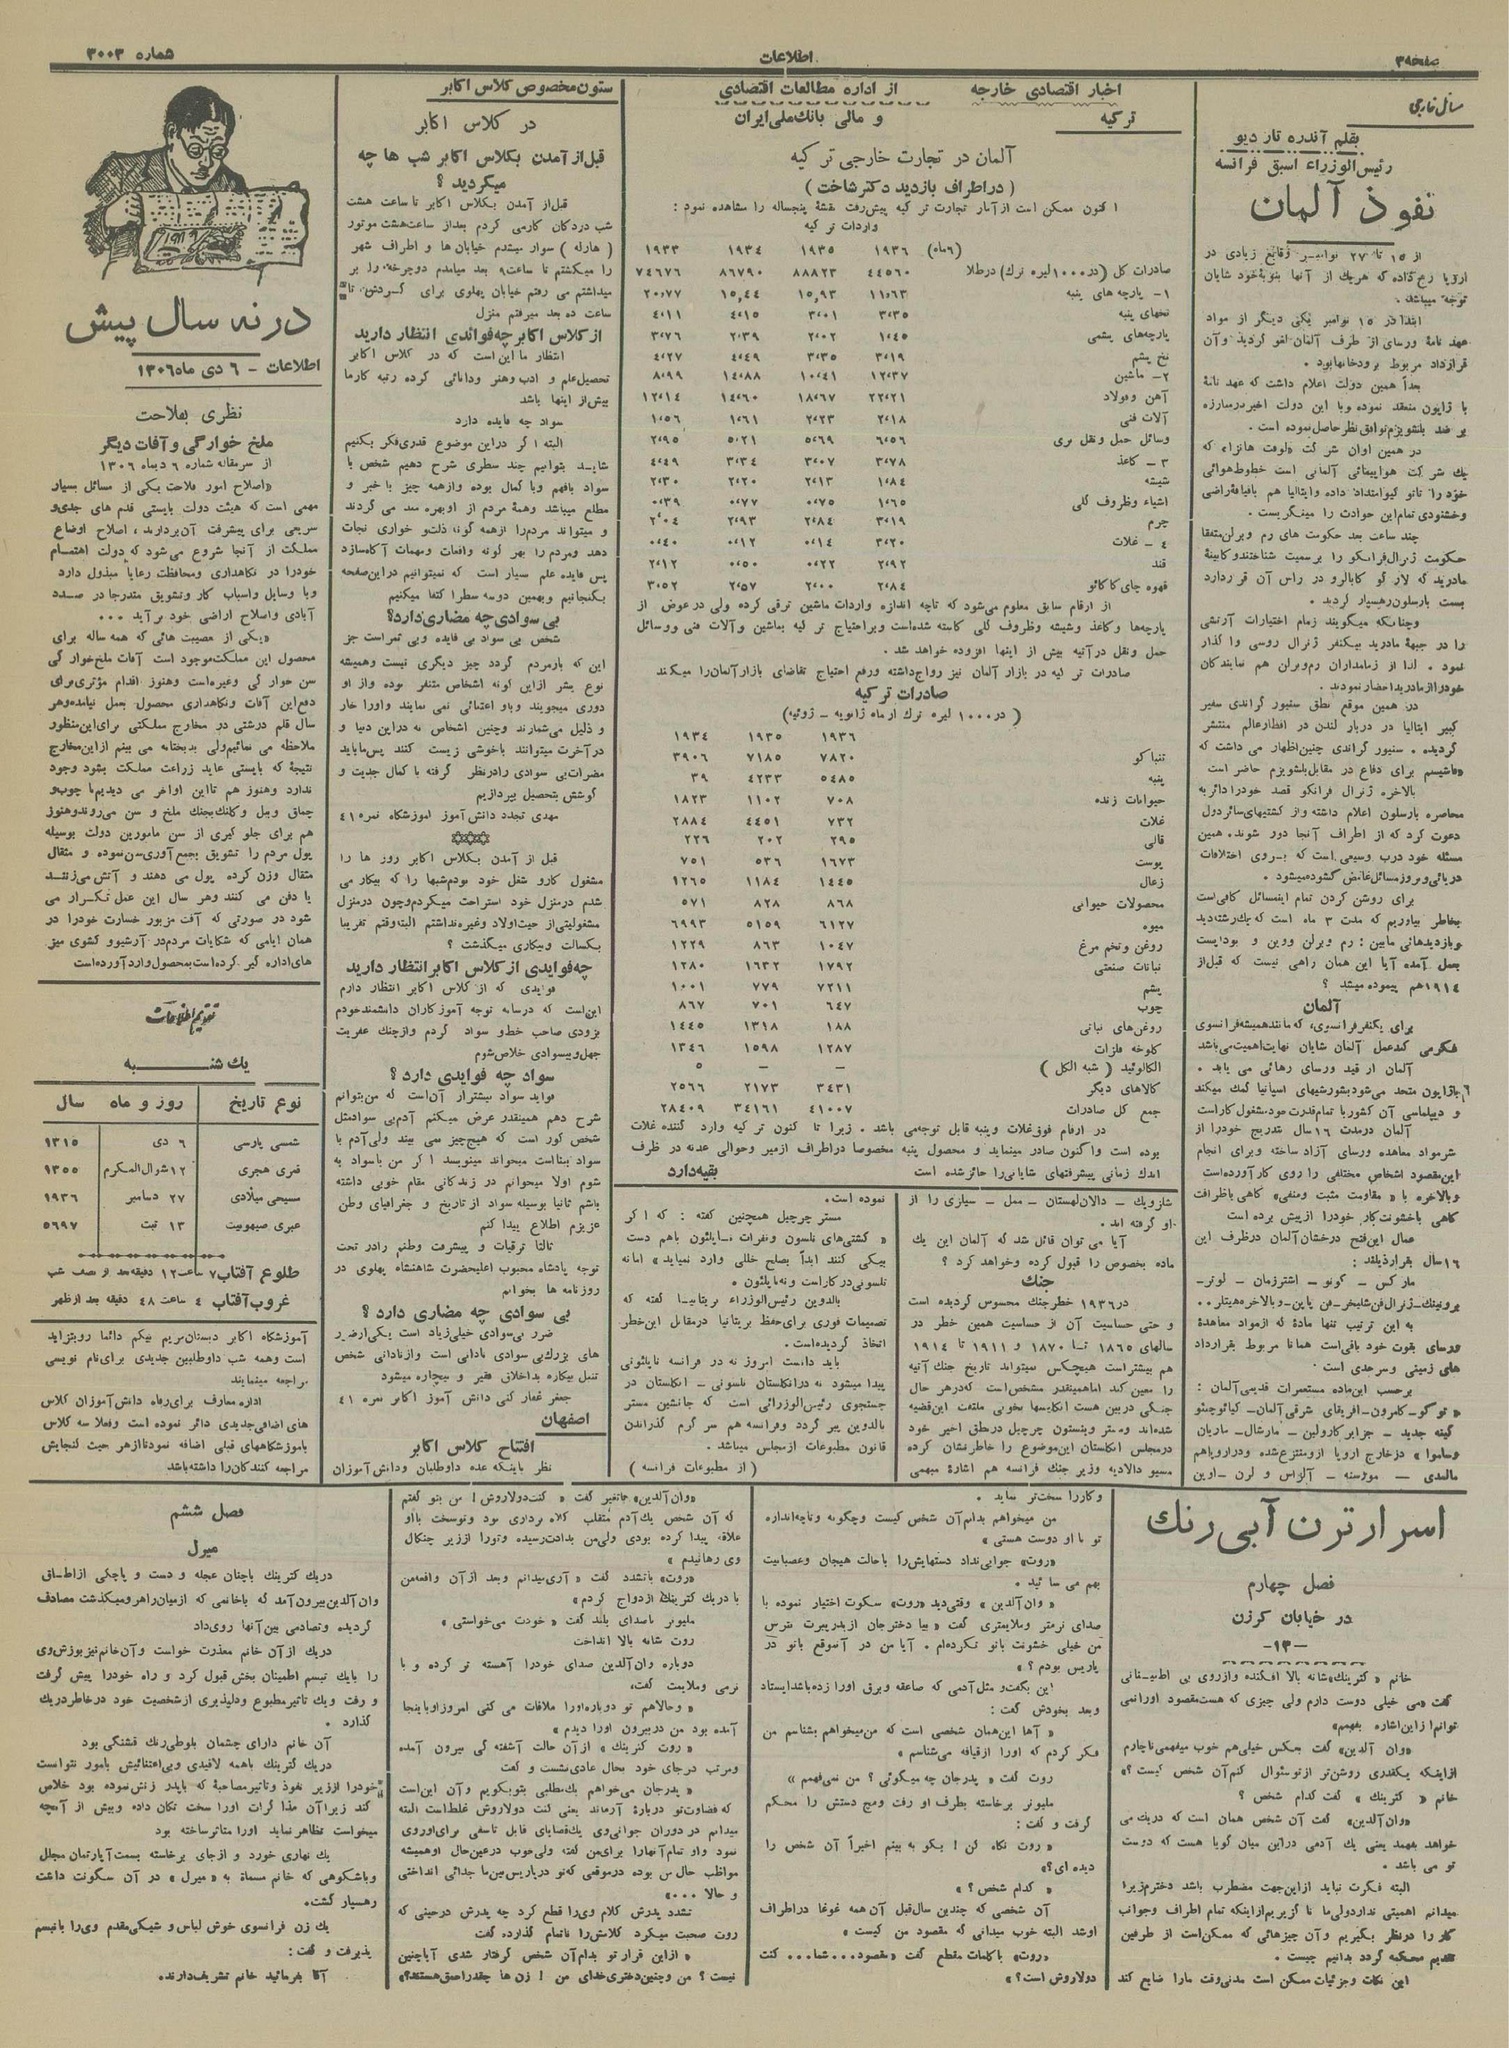 صفحه ۳
اطلاعات
شماره ۳۰۰۳
مسائل خارجی
بقلم آندره تار دیو
رئیس‌الوزراء اسبق فرانسه
نفوذ آلمان
از ۱۵ تا ۲۷ نوامبر وقایع زیادی در
اروپا رخ داده که هریک از آنها بنوبهٔ خود شایان
توجه میباشد.
ابتدا در ۱۵ نوامبر یکی دیگر از مواد
عهد نامهٔ ورسای از طرف آلمان لغو گردید و آن
قرارداد مربوط برودخانها بود.
بعداً همین دولت اعلام داشت که عهد نامهٔ
با ژاپون منعقد نموده و با این دولت اخیر در مبارزه
بر ضد بلشویزم توافق نظر حاصل نموده است.
در همین اوان شرکت «لوفت هانزا» که
یک شرکت هواپیمائی آلمانی است خطوط هوائی
خود را تا
وخشنودی تمام این حوادث را مینگریست.
چند ساعت بعد حکومت های رم و برلن متفقا
حکومت ژنرال فرانکو را برسمیت شناختند و کابینهٔ
مادرید که لارگو کابالرو در راس آن قرار دارد
بسمت بارسلون رهسپار گردید.
وچنانکه میگویند زمام اختیارات آرتشی
را در جبههٔ مادرید بیکنفر ژنرال روسی واگذار
نمود. لذا از زمامداران رم و برلن هم نمایندگان
خود را از مادرید احضار نمودند.
در همین موقع نطق سنیور گراندی سفیر
کبیر ایتالیا در دربار لندن در اقطار عالم منتشر
گردیده. سنیور گراندی چنین اظهار می داشت که
«فاشیسم برای دفاع در مقابل بلشویزم حاضر است
بالاخره ژنرال فرانکو قصد خود را دائر به
محاصره بارسلون اعلام داشته و از کشتیهای سائر دول
دعوت کرد که از اطراف آنجا دور شوند. همین
مسئله خود درب وسیعی است که بروی اختلافات
دریائی و بروز مسائل غامض گشوده میشود.
برای روشن کردن تمام این مسائل کافی است
بخاطر بیاوریم که مدت ۳ ماه است که یک رشته دید
وبازدیدهائی مابین: رم و برلن و وین و بوداپست
بعمل آمده آیا این همان راهی نیست که قبل از
۱۹۱۴ هم پیموده میشد؟
آلمان
برای یکنفر فرانسوی، که مانند همیشه فرانسوی
فکر می کند عمل آلمان شایان نهایت اهمیت می باشد
آلمان از قید ورسای رهائی می یابد.
با ژاپون متحد می شود بشورشیهای اسپانیا کمک میکند
و دیپلماسی آن کشور با تمام قدرت خود مشغول کار است
آلمان در مدت ۱۶ سال بتدریج خود را از
شر مواد معاهده ورسای آزاد ساخته و برای انجام
این مقصود اشخاص مختلفی را روی کار آورده است
وبالاخره با «مقاومت مثبت و منفی» گاهی با ظرافت
گاهی با خشونت کار خود را از پیش برده است
عمال این فتح درخشان آلمان در ظرف این
۱۶ سال بقرار ذیلند:
مارکس - کونو - اشترزمان - لوتر-
برونینک - ژنرال فن شلیخر - فن پاپن - وبالاخره هیتلر..
به این ترتیب تنها مادهٔ که از مواد معاهدهٔ
ورسای بقوت خود باقی است همانا مربوط بقرارداد
های زمینی و سرحدی است.
برحسب این ماده مستعمرات قدیمی آلمان:
«توگو - کامرون - افریقای شرقی آلمان - کیائوچئو
گینه جدید - جزایر کارولین - مارشال - ماریان
وساموا» در خارج اروپا از او منتزع شده و در اروپا هم
مالمدی - مورسنه - آلزاس و لرن - اوپن
اخبار اقتصادی خارجه
ترکیه
از اداره مطالعات اقتصادی
و مالی بانک ملی ایران
آلمان در تجارت خارجی ترکیه
(در اطراف بازدید دکتر شاخت)
اکنون ممکن است از آمار تجارت ترکیه پیشرفت نقشهٔ پنجساله را مشاهده نمود:
واردات ترکیه
(۶ ماه) ۱۹۳۶ ۱۹۳۵ ۱۹۳۴ ۱۹۳۳
صادرات کل (در ۱۰۰۰ لیره ترک) درطلا ۴۴۵۶۰ ۸۸۸۲۳ ۸۶۷۹۰ ۷۴۶۷۶
۱- پارچه های پنبه ۱۱،۶۳ ۱۵،۹۳ ۱۵،۴۴ ۲۰،۷۷
نخهای پنبه ۳،۳۵ ۳،۰۱ ۴،۱۵ ۴،۱۱
پارچه‌های پشمی ۱،۴۵ ۲،۰۲ ۲،۳۹ ۳،۷۶
نخ پشم ۳،۱۹ ۳،۳۵ ۴،۴۹ ۴،۲۷
۲- ماشین ۱۲،۳۷ ۱۰،۴۱ ۱۴،۸۸ ۸،۹۹
آهن و فولاد ۲۲،۲۱ ۱۸،۶۷ ۱۴،۶۰ ۱۲،۱۴
آلات فنی ۲،۱۸ ۲،۲۳ ۱،۶۱ ۱،۵۶
وسائل حمل و نقل بری ۶،۵۶ ۵،۶۹ ۵،۲۱ ۲،۹۵
۳- کاغذ ۳،۷۸ ۳،۰۷ ۳،۳۴ ۴،۴۹
شیشه ۱،۸۴ ۲،۱۳ ۲،۲۰ ۲،۳۰
اشیاء وظروف گلی ۱،۶۵ ۰،۷۵ ۰،۷۷ ۰،۳۹
چرم ۳،۱۹ ۲،۸۴ ۲،۹۳ ۲،۰۴
۴- غلات ۳،۲۰ ۰،۱۴ ۰،۱۲ ۰،۴۰
قند ۲،۹۲ ۰،۲۲ ۰،۵۰ ۲،۱۲
قهوه چای کاکائو ۲،۸۴ ۲،۰۰ ۲،۵۷ ۳،۵۲
از ارقام سابق معلوم می‌شود که تا چه اندازه واردات ماشین ترقی کرده ولی در عوض از
پارچه‌ها و کاغذ و شیشه وظروف گلی کاسته شده است و بر احتیاج ترکیه بماشین و آلات فنی و وسائل
حمل و نقل در آتیه بیش از اینها افزوده خواهد شد.
صادرات ترکیه در بازار آلمان نیز رواج داشته و رفع احتیاج تقاضای بازار آلمان را میکند
صادرات ترکیه
(در ۱۰۰۰ لیره ترک از ماه ژانویه - ژوئیه)
۱۹۳۶ ۱۹۳۵ ۱۹۳۴
تنباکو ۷۸۲۰ ۷۱۸۵ ۳۹۰۶
پنبه ۵۴۸۵ ۴۲۳۳ ۳۹
حیوانات زنده ۷۰۸ ۱۱۰۲ ۱۸۲۳
غلات ۷۳۲ ۴۴۵۱ ۲۸۸۴
قالی ۲۹۵ ۲۰۲ ۲۲۶
پوست ۱۶۷۳ ۵۳۶ ۷۵۱
زغال ۱۴۴۵ ۱۱۸۴ ۱۲۶۵
محصولات حیوانی ۸۶۸ ۸۲۸ ۵۷۱
میوه ۶۱۲۷ ۵۱۵۹ ۶۹۹۳
روغن و تخم مرغ ۱۰۴۷ ۸۶۳ ۱۲۲۹
نباتات صنعتی ۱۷۹۲ ۱۶۳۲ ۱۲۸۰
پشم ۷۲۱۱ ۷۷۹ ۱۰۰۱
چوب ۶۴۷ ۷۰۱ ۸۶۷
روغن‌های نباتی ۱۸۸ ۱۳۱۸ ۱۴۴۵
کلوخه فلزات ۱۲۸۷ ۱۵۹۸ ۱۳۴۶
الکالوئید (شبه الکل) – – ۵
کالاهای دیگر ۳۴۳۱ ۲۱۷۳ ۲۵۶۶
جمع کل صادرات ۴۱۰۰۷ ۳۴۱۶۱ ۲۸۴۰۹
در ارقام فوق غلات و پنبه قابل توجه می باشد. زیرا تا کنون ترکیه وارد کننده غلات
بوده است و اکنون صادر مینماید و محصول پنبه مخصوصا در اطراف ازمیر و حوالی عدنه در ظرف
اندک زمانی پیشرفتهای شایانی را حائز شده است
بقیه دارد
شلزویک - دالان لهستان - ممل - سیلزی را از
او گرفته اند.
آیا می توان قائل شد که آلمان این یک
ماده بخصوص را قبول کرده و خواهد کرد؟
جنگ
در ۱۹۳۶ خطر جنگ محسوس گردیده است
و حتی حساسیت آن از حساسیت همین خطر در
سالهای ۱۸۶۵ تا ۱۸۷۰ و ۱۹۱۱ تا ۱۹۱۴
هم بیشتر است هیچکس نمیتواند تاریخ جنگ آتیه
را معین کند اما همینقدر مشخص است که در هر حال
جنگی در بین هست انگلیسها بخوبی ملتفت این قضیه
شده‌اند و مستر وینستون چرچیل در نطق اخیر خود
در مجلس انگلستان این موضوع را خاطر نشان کرده
مسیو دالادیه وزیر جنگ فرانسه هم اشارهٔ مبهمی
نموده است.
مستر چرچیل همچنین گفته: که اگر
«کشتی‌های نلسون و نفرات ناپلئون باهم دست
بیکی کنند ابداً بصلح خللی وارد نمیاید» اما نه
نلسونی در کار است و نه ناپلئون.
بالدوین رئیس‌الوزراء بریتانیا گفته که
تصمیمات فوری برای حفظ بریتانیا در مقابل این خطر
اتخاذ گردیده است.
باید دانست امروز نه در فرانسه ناپلئونی
پیدا میشود نه در انگلستان نلسونی - انگلستان در
جستجوی رئیس‌الوزرائی است که جانشین مستر
بالدوین پیر گردد و فرانسه هم سرگرم گذراندن
قانون مطبوعات از مجلس میباشد.
(از مطبوعات فرانسه)
ستون مخصوص کلاس اکابر
در کلاس اکابر
قبل از آمدن بکلاس اکابر شب ها چه
میکردید؟
قبل از آمدن بکلاس اکابر تا ساعت هشت
شب در دکان کار می کردم بعد از ساعت هشت موتور
(هارله) سوار میشدم خیابان ها و اطراف شهر
را میگشتم تا ساعت ۹ بعد میامدم دوچرخه را بر
میداشتم می رفتم خیابان پهلوی برای گردش تا
ساعت ده بعد میرفتم منزل
از کلاس اکابر چه فوائدی انتظار دارید
انتظار ما این است که در کلاس اکابر
تحصیل علم و ادب و هنر و دانائی کرده رتبه کار ما
بیش از اینها باشد
سواد چه فایده دارد
البته اگر در این موضوع قدری فکر بکنیم
شاید بتوانیم چند سطری شرح دهیم شخص با
سواد بافهم و با کمال بوده و از همه چیز با خبر و
مطلع میباشد و همهٔ مردم از او بهره مند می گردند
و میتواند مردم را از همه گونه ذلت و خواری نجات
دهد و مردم را بهر گونه واقعات و مهمات آگاه سازد
پس فایده علم بسیار است که نمیتوانیم در این صفحه
بگنجانیم و بهمین دو سه سطر اکتفا میکنیم
بی سوادی چه مضاری دارد؟
شخص بی سواد بی فایده و بی ثمر است جز
این که بار مردم گردد چیز دیگری نیست و همیشه
نوع بشر از این گونه اشخاص متنفر بوده و از او
دوری میجویند و باو اعتنائی نمی نمایند و او را خار
و ذلیل می‌شمارند و چنین اشخاص نه در این دنیا و
در آخرت میتوانند با خوشی زیست کنند پس ما باید
مضرات بی سوادی را در نظر گرفته با کمال جدیت و
کوشش بتحصیل بپردازیم
مهدی تجدد دانش آموز آموزشگاه نمره ۴۱
قبل از آمدن بکلاس اکابر روز ها را
مشغول کار و شغل خود بودم شبها را که بیکار می
شدم در منزل خود استراحت میکردم و چون در منزل
مشغولیتی از حیث اولاد و غیره نداشتم البته وقتم تقریبا
بکسالت و بیکاری میگذشت؟
چه فوایدی از کلاس اکابر انتظار دارید
فوایدی که از کلاس اکابر انتظار دارم
این است که در سایه توجه آموزگاران دانشمند خودم
بزودی صاحب خط و سواد گردم و از چنگ عفریت
جهل و بیسوادی خلاص شوم
سواد چه فوایدی دارد؟
فواید سواد بیشتر از آن است که من بتوانم
شرح دهم همینقدر عرض میکنم آدم بی سواد مثل
شخص کور است که هیچ چیز نمی بیند ولی آدم با
سواد بینا است میخواند مینویسد اگر من باسواد به
شوم اولا میخوانم در زندگانی مقام خوبی داشته
باشم ثانیا بوسیله سواد از تاریخ و جغرافیای وطن
عزیزم اطلاع پیدا کنم
ثالثا ترقیات و پیشرفت وطنم را در تحت
توجه پادشاه محبوب اعلیحضرت شاهنشاه پهلوی در
روزنامه ها بخوانم
بی سوادی چه مضاری دارد؟
ضرر بی‌سوادی خیلی زیاد است یکی از ضرر
های بزرگ بی سوادی نادانی است و از نادانی شخص
تنبل بیکاره بداخلاق فقیر و بیچاره میشود
جعفر غفارکنی دانش آموز اکابر نمره ۴۱
اصفهان
افتتاح کلاس اکابر
نظر باینکه عده داوطلبان و دانش آموزان
۱۳۰۶
در نه سال پیش
اطلاعات - ۶ دی ماه ۱۳۰۶
نظری بفلاحت
ملخ خوارگی و آفات دیگر
از سرمقاله شماره ۶ دیماه ۱۳۰۶
«اصلاح امور فلاحت یکی از مسائل بسیار
مهمی است که هیئت دولت بایستی قدم های جدی و
سریعی برای پیشرفت آن بردارند، اصلاح اوضاع
مملکت از آنجا شروع می شود که دولت اهتمام
خود را در نگاهداری و محافظت رعایا مبذول دارد
وبا وسایل و اسباب کار و تشویق متدرجا در صدد
آبادی و اصلاح اراضی خود برآید ...
«یکی از مصیبت هائی که همه ساله برای
محصول این مملکت موجود است آفات ملخ خوارگی
سن خوارگی وغیره است وهنوز اقدام مؤثری برای
دفع این آفات و نگاهداری محصول بعمل نیامده و هر
سال قلم درشتی در مخارج مملکتی برای این منظور
ملاحظه می نمائیم ولی بدبختانه می بینم از این مخارج
نتیجهٔ که بایستی عاید زراعت مملکت بشود وجود
ندارد وهنوز هم تا این اواخر می دیدیم با چوب و
چماق و بیل و کلنگ بجنگ ملخ و سن می روند وهنوز
هم برای جلوگیری از سن مامورین دولت بوسیله
پول مردم را تشویق بجمع آوری سن نموده و مثقال
مثقال وزن کرده پول می دهند و آتش می زنند
یا دفن می کنند و هر سال این عمل تکرار می
شود در صورتی که آفت مزبور خسارت خود را در
همان ایامی که شکایات مردم در آرشیو و کشوی میز
های اداره گیر کرده است به محصول وارد آورده است
تقویم اطلاعات
یک شنبه
نوع تاریخ روز و ماه سال
شمسی پارسی ۶ دی ۱۳۱۵
قمری هجری ۱۲ شوال المکرم ۱۳۵۵
مسیحی میلادی ۲۷ دسامبر ۱۹۳۶
عبری صیهونیت ۱۳ تبت ۵۶۹۷
طلوع آفتاب ۷ ساعت ۱۲ دقیقه بعد از نصف شب
غروب آفتاب ۴ ساعت ۴۸ دقیقه بعد از ظهر
آموزشگاه اکابر دبستان مریم بیگم دائما رو بتزاید
است وهمه شب داوطلبین جدیدی برای نام نویسی
مراجعه مینمایند
اداره معارف برای رفاه دانش آموزان کلاس
های اضافی جدیدی دائر نموده است و فعلا سه کلاس
بآموزشگاههای قبلی اضافه نموده تا از هر حیث گنجایش
مراجعه کنندگان را داشته باشد
اسرار ترن آبی رنگ
فصل چهارم
در خیابان کرزن
-۱۳-
خانم «کترینگ» شانه بالا افکنده و از روی بی اطمینانی
گفت «می خیلی دوست دارم ولی چیزی که هست مقصود او را نمی
توانم از این اشاره بفهمم»
«وان آلدین» گفت بعکس خیلی هم خوب میفهمی ناچارم
از اینکه یکقدری روشن‌تر از تو سئوال کنم آن شخص کیست؟
خانم «کترینگ» گفت کدام شخص؟
«وان آلدین» گفت آن شخص همان است که دریک می
خواهد بفهمد یعنی یک آدمی در این میان گویا هست که دوست
تو می باشد.
البته فکرت نباید از این جهت مضطرب باشد دخترم زیرا
میدانم اهمیتی ندارد ولی ما ناگزیریم از اینکه تمام اطراف وجوانب
کار را در نظر بگیریم و آن چیزهائی که ممکن است از طرفین
تقدیم محکمه گردد بدانیم چیست.
این نکات و جزئیات ممکن است مدنی وقت ما را ضایع کند
وکار را سخت‌تر نماید.
من میخواهم بدانم آن شخص کیست و چگونه و تا چه اندازه
تو با او دوست هستی»
«روت» جوابی نداد دستهایش را با حالت هیجان و عصبانیت
بهم می سائید.
«وان آلدین» وقتی دید «روت» سکوت اختیار نموده با
صدای نرمتر و ملایمتری گفت «بیا دختر جان از پدر پیرت مترس
من خیلی خشونت باتو نکرده‌ام. آیا من در آنموقع باتو در
پاریس بودم؟»
این بگفت و مثل آدمی که صاعقه و برق او را زده باشد ایستاد
وبعد بخودش گفت:
«آها این همان شخصی است که من میخواهم بشناسم من
فکر کردم که او را از قیافه می‌شناسم»
روت گفت «پدر جان چه میگوئی؟ من نمی‌فهمم»
ملیونر برخاسته بطرف او رفت و مچ دستش را محکم
گرفت و گفت:
«روت نگاه کن! بگو به بینم اخیراً آن شخص را
دیده ای؟»
«کدام شخص؟»
آن شخصی که چندین سال قبل آن همه غوغا در اطراف
اوشد البته خوب میدانی که مقصود من کیست»
«روت» با کلمات مقطع گفت «مقصود... شما... کنت
دولاروش است؟»
«وان آلدین» متغیر گفت «کنت دولاروش! من بتو گفتم
که آن شخص یک آدم متقلب کلاه برداری بود و توسخت با او
علاقه پیدا کرده بودی ولی من بدادت رسیده و تو را از زیر چنگال
وی رهانیدم»
«روت» با تشدد گفت «آری میدانم و بعد از آن واقعه من
با دریک کترینگ ازدواج کردم»
ملیونر با صدای بلند گفت «خودت می‌خواستی»
روت شانه بالا انداخت
دوباره وان آلدین صدای خود را آهسته تر کرده و با
نرمی وملایمت گفت:
«وحالا هم تو دوباره او را ملاقات می کنی امروز او باینجا
آمده بود من در بیرون او را دیدم»
«روت کترینگ» از آن حالت آشفته گی بیرون آمده
ومرتب در جای خود بحال عادی نشست و گفت
«پدر جان می‌خواهم یک مطلبی بتو بگویم و آن این است
که قضاوت تو در بارهٔ آرماند یعنی کنت دولاروش غلط است البته
میدانم در دوران جوانی وی یک قضایای قابل تأسفی برای او روی
نمود و او تمام آنها را برای من گفته ولی خوب در عین حال او همیشه
مواظب حال من بوده در موقعی که تو در پاریس بین ما جدائی انداختی
و حالا ...»
تشدد پدرش کلام وی را قطع کرد چه پدرش در حینی که
روت صحبت میکرد کلامش را ناتمام گذارده گفت
«از این قرار تو بدام آن شخص گرفتار شدی آیا چنین
نیست؟ من و چنین دختری خدای من! زن ها چقدر احمق هستند؟»
فصل ششم
میرل
دریک کترینگ باچنان عجله و دست و پاچگی از اطاق
وان آلدین بیرون آمد که باخانمی که از میان راهرو میگذشت مصادف
گردیده و تصادمی بین آنها روی داد
دریک از آن خانم معذرت خواست و آن خانم نیز پوزش وی
را بایک تبسم اطمینان بخش قبول کرد و راه خود را پیش گرفت
و رفت ویک تاثیر مطبوع و دلپذیری از شخصیت خود در خاطر دریک
گذارد.
آن خانم دارای چشمان بلوطی رنگ قشنگی بود
دریک کترینگ باهمه لاقیدی و بی اعتنائیش بامور نتوانست
خود را از زیر نفوذ و تاثیر مصاحبهٔ که با پدر زنش نموده بود خلاص
کند زیرا آن مذاکرات او را سخت تکان داده و بیش از آنچه
میخواست تظاهر نماید او را متاثر ساخته بود
یک نهاری خورد و از جای برخاسته بسمت آپارتمان مجلل
وباشکوهی که خانم مسماة به «میرل» در آن سکونت داشت
رهسپار گشت.
یک زن فرانسوی خوش لباس و شیکی مقدم وی را با تبسم
پذیرفت و گفت:
آقا بفرمائید خانم تشریف دارند.